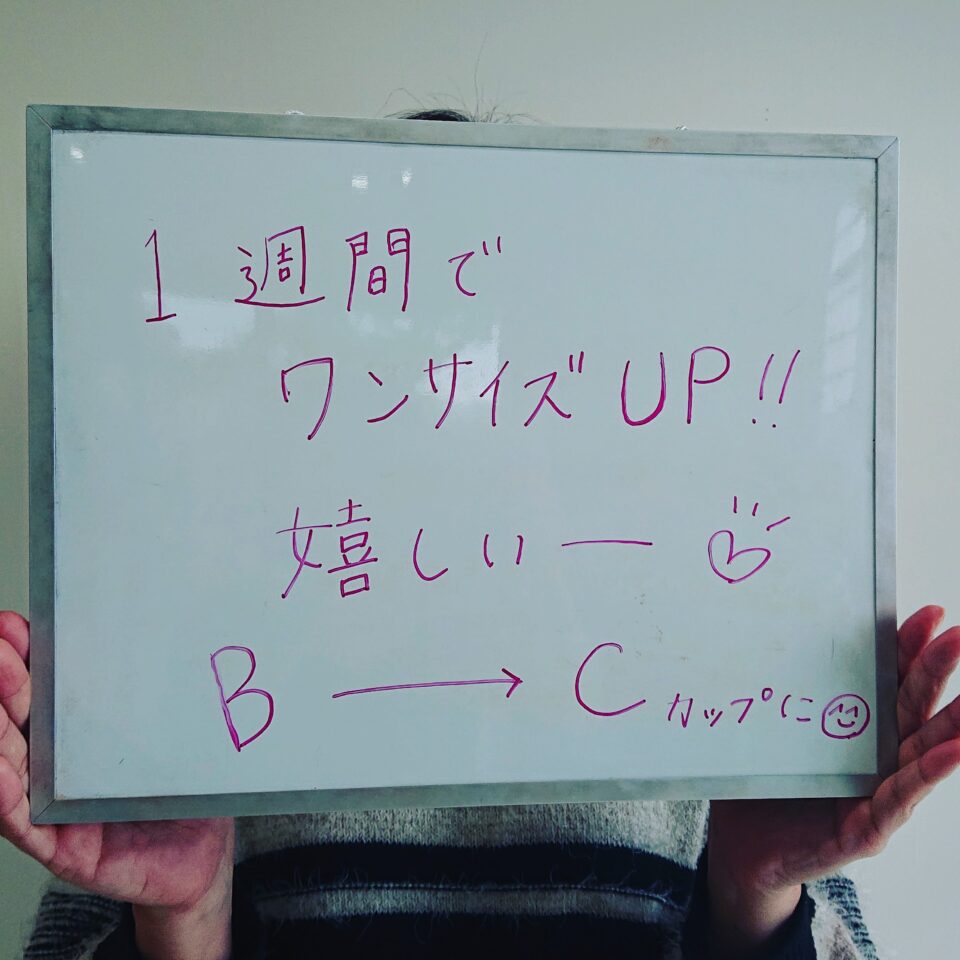 1週間で
ワンサイズUP!!
嬉しいー♡
B → Cカップに☺